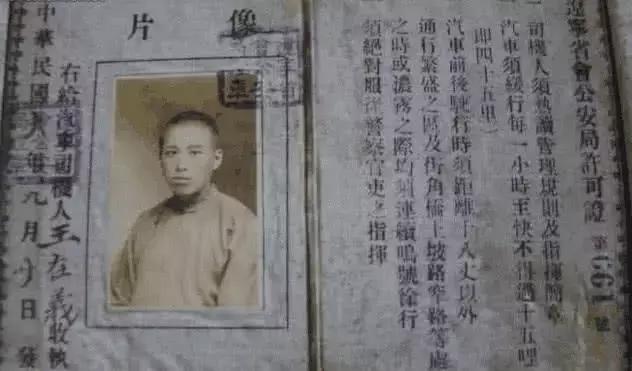 遼寧省會公安局許可證 第 號
一司機人須熟讀管理規則及指揮簡章
汽車須緩行每一小時至快不得過十五哩
(即四十五里)
汽車前後駛行時須距離十八丈以外
通行繁盛之區及街角橋上坡路窄路等處
之時或濃霧之際均須連續鳴號餘行
須絕對服從警察官吏之指揮
像片
右給汽車司機人王在義收執
中華民國 年九月 日發